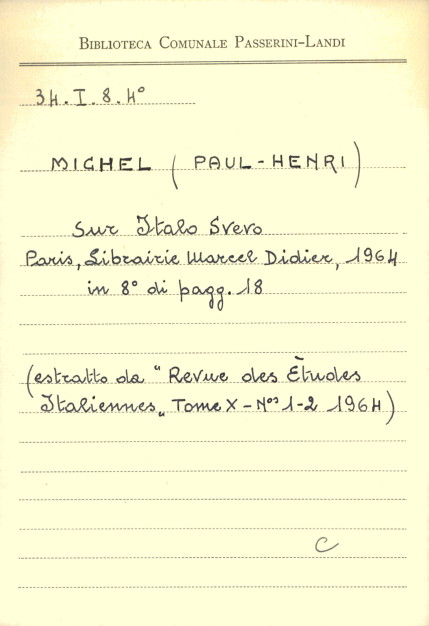 BIBLIOTECA COMUNALE PASSERINI-LANDI
34.I.8.4°
MICHEL (PAUL-HENRI)
Sur Italo Svevo
Paris, Librairie Marcel Didier, 1964
in 8° di pagg. 18
(estratto da "Revue des Ètudes
Italiennes„ Tome X - Nos 1-2 1964)
C